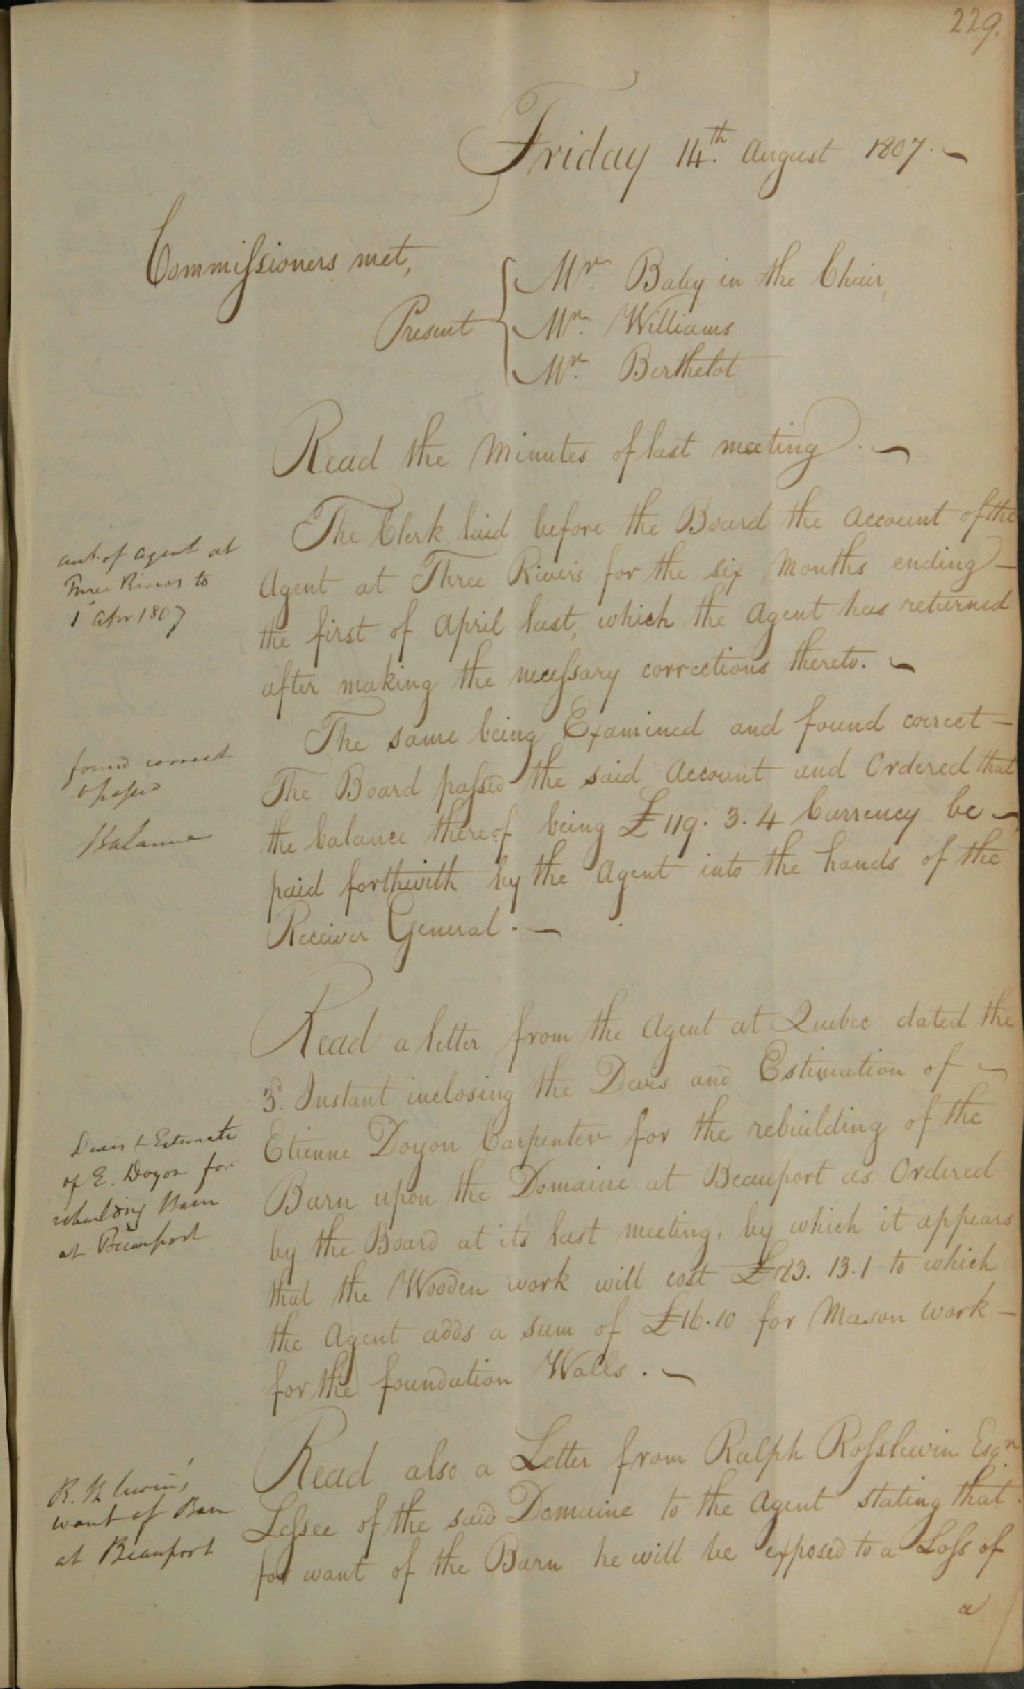 229.
Friday 14.th August 1807.
Commissioners met,
Present
Mr. Baby in the Chair,
Mr. Williams
Mr. Berthelot
Read the Minutes of last meeting.
The Clerk laid before the Board the Account of the
Agent at Three Rivers for the six Months ending
the first of April last, which the Agent has returned
after making the necessary corrections thereto.
The same being Examined and found correct
The Board passed the said Account and Ordered that
the balance thereof being £119. 3. 4 Currency be
paid forthwith by the Agent into the hands of the
Receiver General.
Read a letter from the Agent at Quebec dated the
3d. Instant inclosing the Devis and Estimation of
Etienne Doyon Carpenter for the rebuilding of the
Barn upon the Domaine at Beauport as Ordered
by the Board at it's last meeting, by which it appears
that the Wooden work will cost 13. 1 to which
the Agent adds a sum of £16. 10 for Mason work
for the foundation Walls.
Read also a Letter from Ralph Rosslewin Esqr.
Lessee of the said Domaine to the Agent stating that
for want of the Barn he will be exposed to a Loss of
a
of Agent at
Three Rivers to
1st Apr 1807
found correct
& passed
Balance
Devis & Estimate
of E. Doyon for
rebuilding Barn
at Beauport
want of Barn
at Beauport